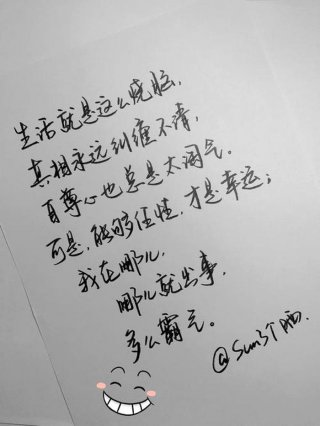 生活就是这么烧脑，
真相永远纠缠不清，
自尊心也总是太淘气。
可是，能够任性，才是幸运；
我在哪儿，
哪儿就出事，
多么霸气。
@Sun3个晒.